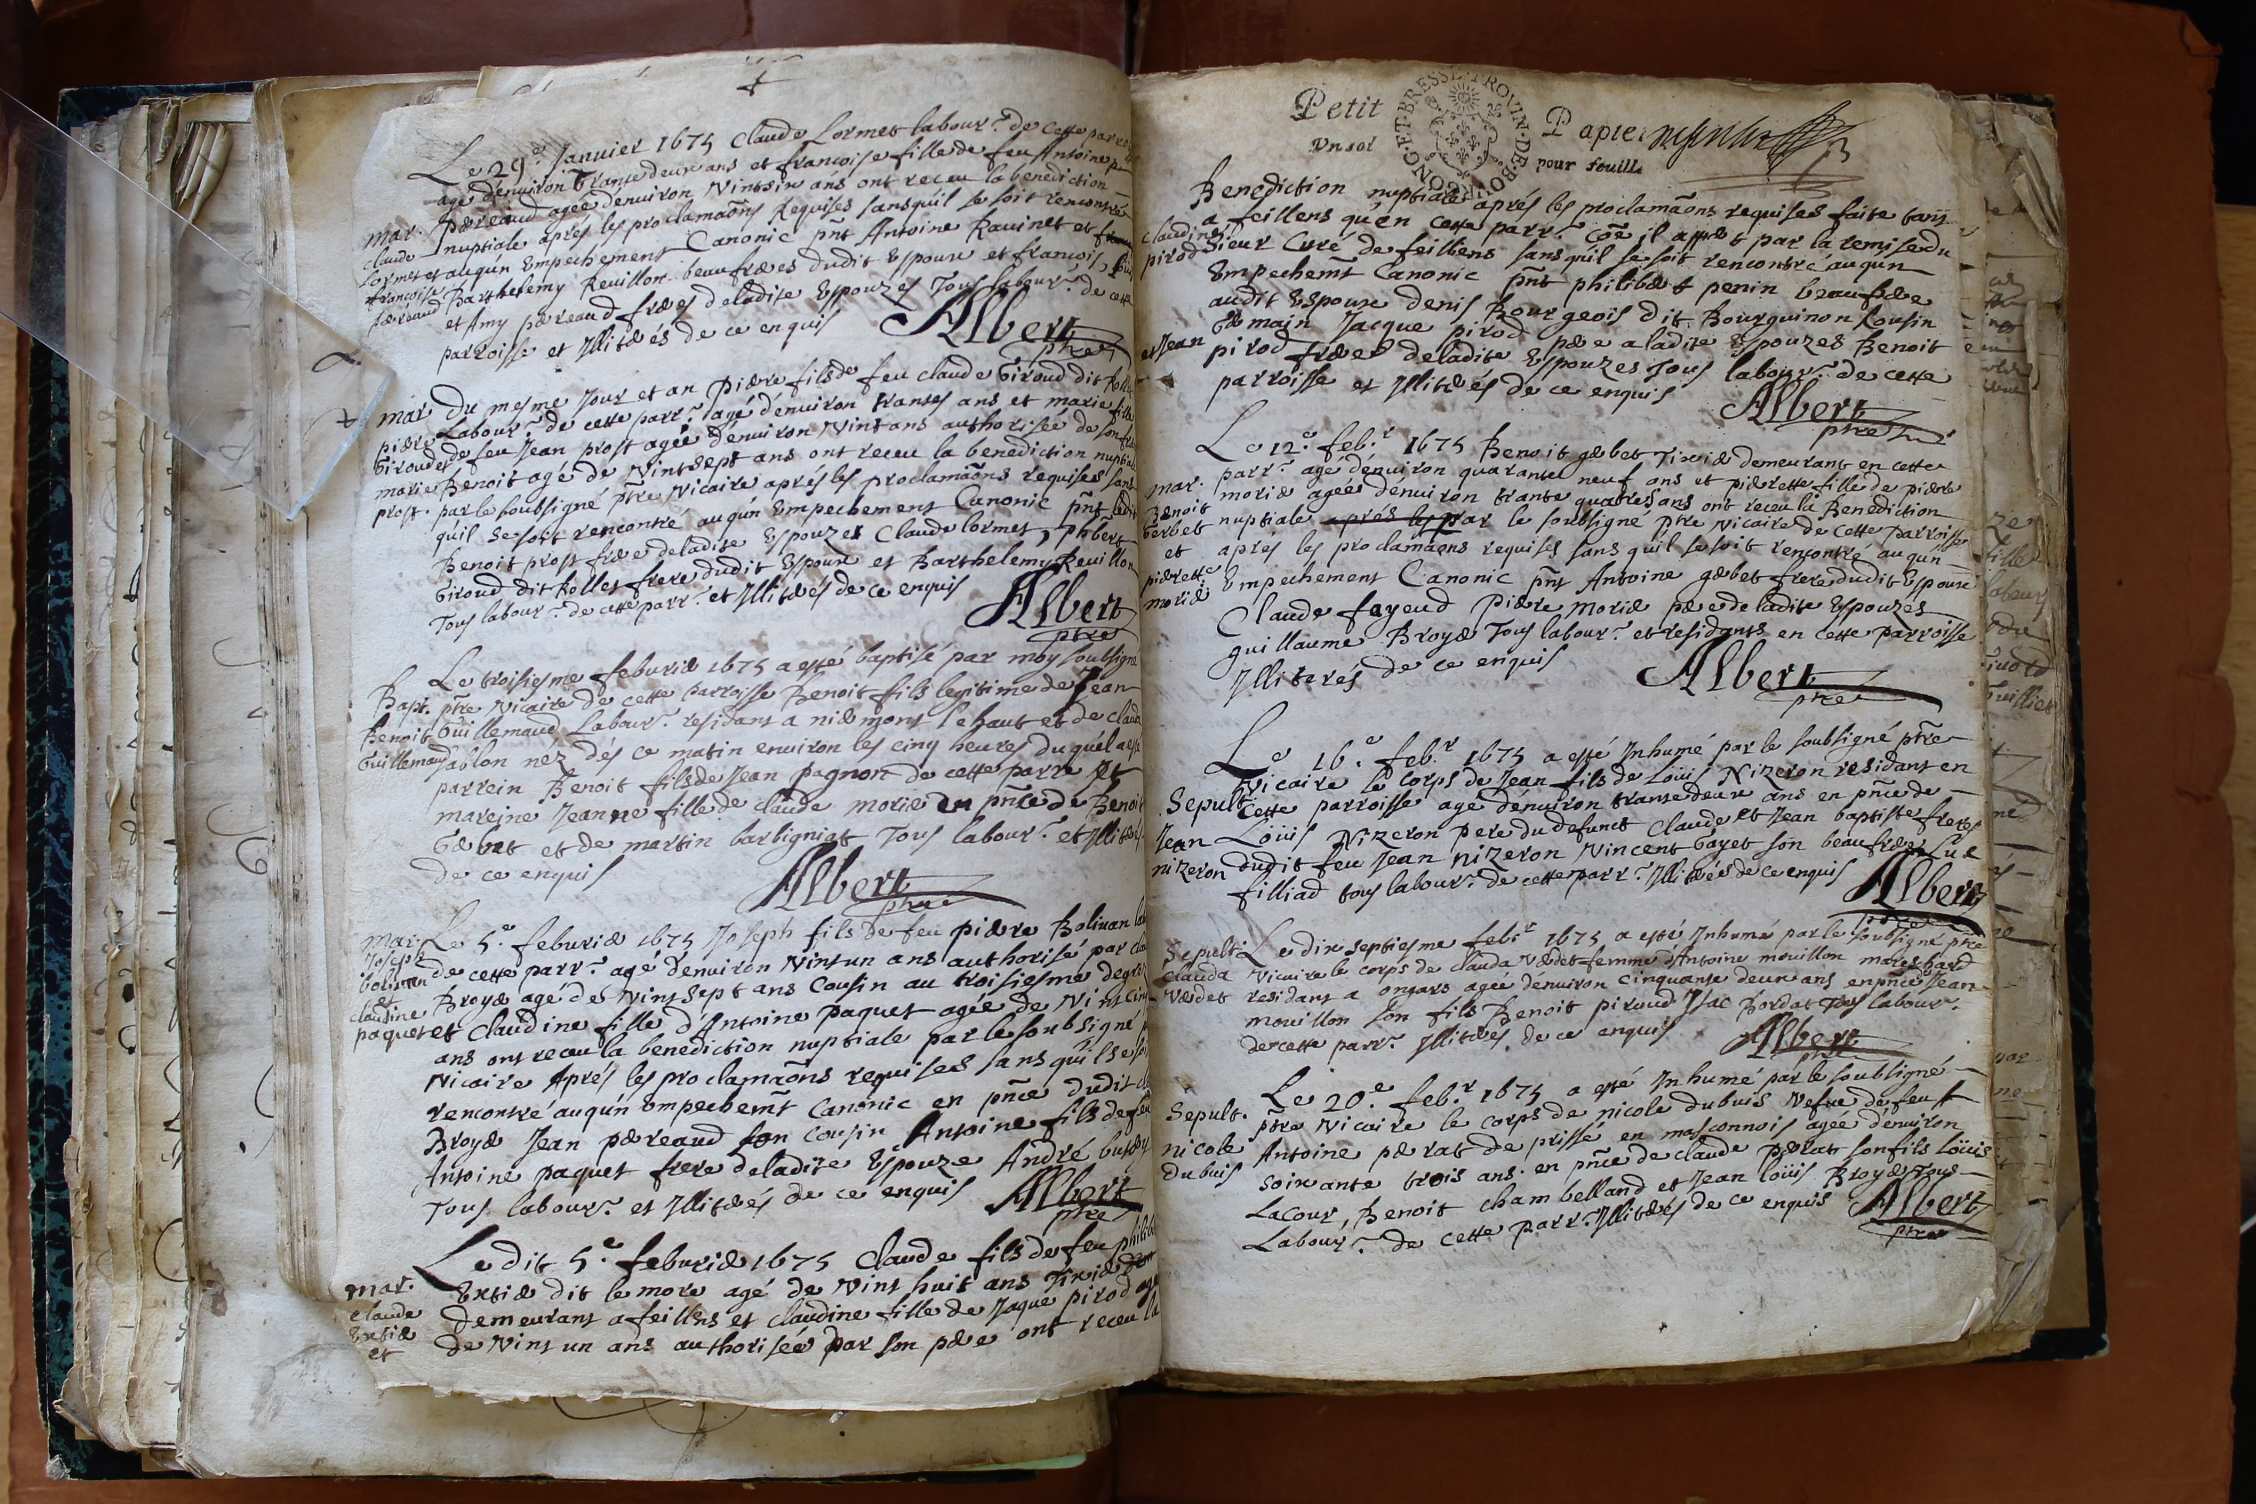 Le 29e Janvier 1675 Claude Lormet labourr. de cette parroisse
agé denuiron trante deux ans et francoise fille de feu Antoine
pereaud agée denuiron Vintsix ans ont receu la benediction
nuptiale aprés les proclamaõns Requises sans qu'il se soit rencontré
auqu'un Empechement Canonic pñt Antoine Rauinet et
Barthelemy Reuillon beaufreres dudit Espoux et francois
et Amy pereaud freres deladite Espouzes Tous labourr. de cette
parroisse et Jllitérés de ce enquis
Albert
ptre
mar.
Claude
Lormet et
francoise
pereaud
Du mesme Jour et an pierre fils de feu claude Giroud dit
Labourr. de cette parr. agé dénuiron trantes ans et marie fille
de feu Jean prost agée dénuiron Vint ans authorisée de son
Benoit agé de Vintsept ans ont receu la benediction nuptiale
par le soubsigné ptre Vicaire aprés les proclamaõns requises sans
qu'il se soit rencontré auqu'un Empechement Canonic pñt ledit
Benoit prost frere deladite Espouzes Claude lormet, phbert
Giroud dit Rollet frere dudit Espoux et Barthelemy Reuillon
Tous labourr. de cette parr. et Jllitérés de ce enquis
Albert
ptre
mar
pierre
Giroud et
marie
prost.
Le troisiesme feburier 1675 a esté baptisé par moy soubsigné
ptre Vicaire de cette parroisse Benoit fils legitime de Jean
Guillemaud Labourr. residant a niermont le haut et de clauda
Sablon néz dés ce matin enuiron les cinq heures duquél a esté
parrein Benoit fils de Jean pagnon de cette parre et
mareine Jeanne fille de claude morier en pñce de Benoit
Gerbet et de martin barbigniat Tous labourr. et Jllitérés
de ce enquis
Albert
ptre
Bapt.
Benoit
Guillemaud
Le 5e. feburier 1675 Joseph fils de feu pierre Boliuan
de cette parr. agé dénuiron Vintun ans authorisé par claude
Broyer agé de Vintsept ans Cousin au troisiesme degré
et Claudine fille d'Antoine paquet agée de Vint cinq
ans ont receu la benediction nuptiale par le soubsigné
Vicaire Aprés les proclamaõns requises sans qu'il se soit
rencontré auqu'un empechemt. Canonic en pñce dudit
Broyer Jean pereaud son Cousin Antoine fils de feu
Antoine paquet frere deladite Espouze André
Tous labourr. et Jllitérés de ce enquis
Albert
ptre
mar.
Joseph
boliuan
et
claudine
paquet
Ledit 5e. feburier 1675 Claude fils de feu philibert
Extier dit le more agé de Vint huit ans Tixier
demeurant a feillens et claudine fille de Jaque pirod agée
de Vint un ans authorisée par son pere ont receu la
mar.
Claude
Extier
et
Petit Papier
Vn sol pour feuille
BOVRGONG·ET·BRESSE·PROVIN·DE·
Benediction nuptiale aprés les proclamaõns requises faite tant
a feillens qu'én cette parr. cõe il appert par la remise du
Sieur Curé de feillens sans qu'il se soit rencontré auqun
Empechemt. Canonic pñt philibert penin beaufrere
audit Espoux denis Bourgeois dit Bourguinon Cousin
Germain Jacque pirod pere a ladite Espouzes Benoit
pirod freres deladite Espouzes Tous labourr. de cette
parroisse et Jllitérés de ce enquis
Albert
ptre
claudine
pirod
et Jean
Le 12e. feb.r 1675 Benoit gerbet Tixier demeurant en cette
parr. agé dénuiron quarante neuf ans et pierrette fille de pierre
morier agées dénuiron trante quatres ans ont receu la Benediction
nuptiale aprés les par le soubsigné ptre Vicaire de Cette Parroisse
aprés les proclamaõns requises sans qu'il se soit rencontré auqu'un
Empechement Canonic pñt Antoine gerbet frere dudit Espoux
Claude fayend Pierre Morier pere deladite Espouzes
guillaume Broyer Tous labourr. et residants en cette parroisse
Jlliterés de ce enquis
Albert
ptre
mar.
Benoit
Gerbet
et
pierrette
morier
Le 16e. feb.r 1675 a esté Jnhumé par le soubsigné ptre
Vicaire le Corps de Jean fils de Loüis Nizeron residant en
Cette parroisse agé denuiron trante deux ans en pñce de
Loüis Nizeron pere du defunct Claude et Jean baptiste freres
dudit feu Jean nizeron Vincent Gayet son beaufrere
filliad tous labourr. de cette parr. Jllitérés de ce enquis
Albert
ptre
Sepult.
Jean
nizeron
Le dix septiesme feb.r 1675 a esté Jnhumé par le soubsigné ptre
Vicaire le corps de clauda Verdet femme d'Antoine mouillon mareschard
residant a ongars agée dénuiron Cinquante deux ans en pñce Jean
mouillon son fils Benoit piroud Jsac Bordat Tous labourr.
de cette parr. Jllitérés de ce enquis
Albert
ptre
Sepult.
Clauda
Verdet
Le 20e. feb.r 1675 a esté Jnhumé par le soubsigné
ptre Vicaire le corps de nicole dubuis Vefue de feu
Antoine perrat de prissé en masconnois agée dénuiron
soixante trois ans en pñce de claude perrat son fils Loüis
Lacour, Benoit chambelland et Jean loüis Broyer Tous
Labourr. de cette parr. Jllitérés de ce enquis
Albert
ptre
Sepult.
nicole
dubuis